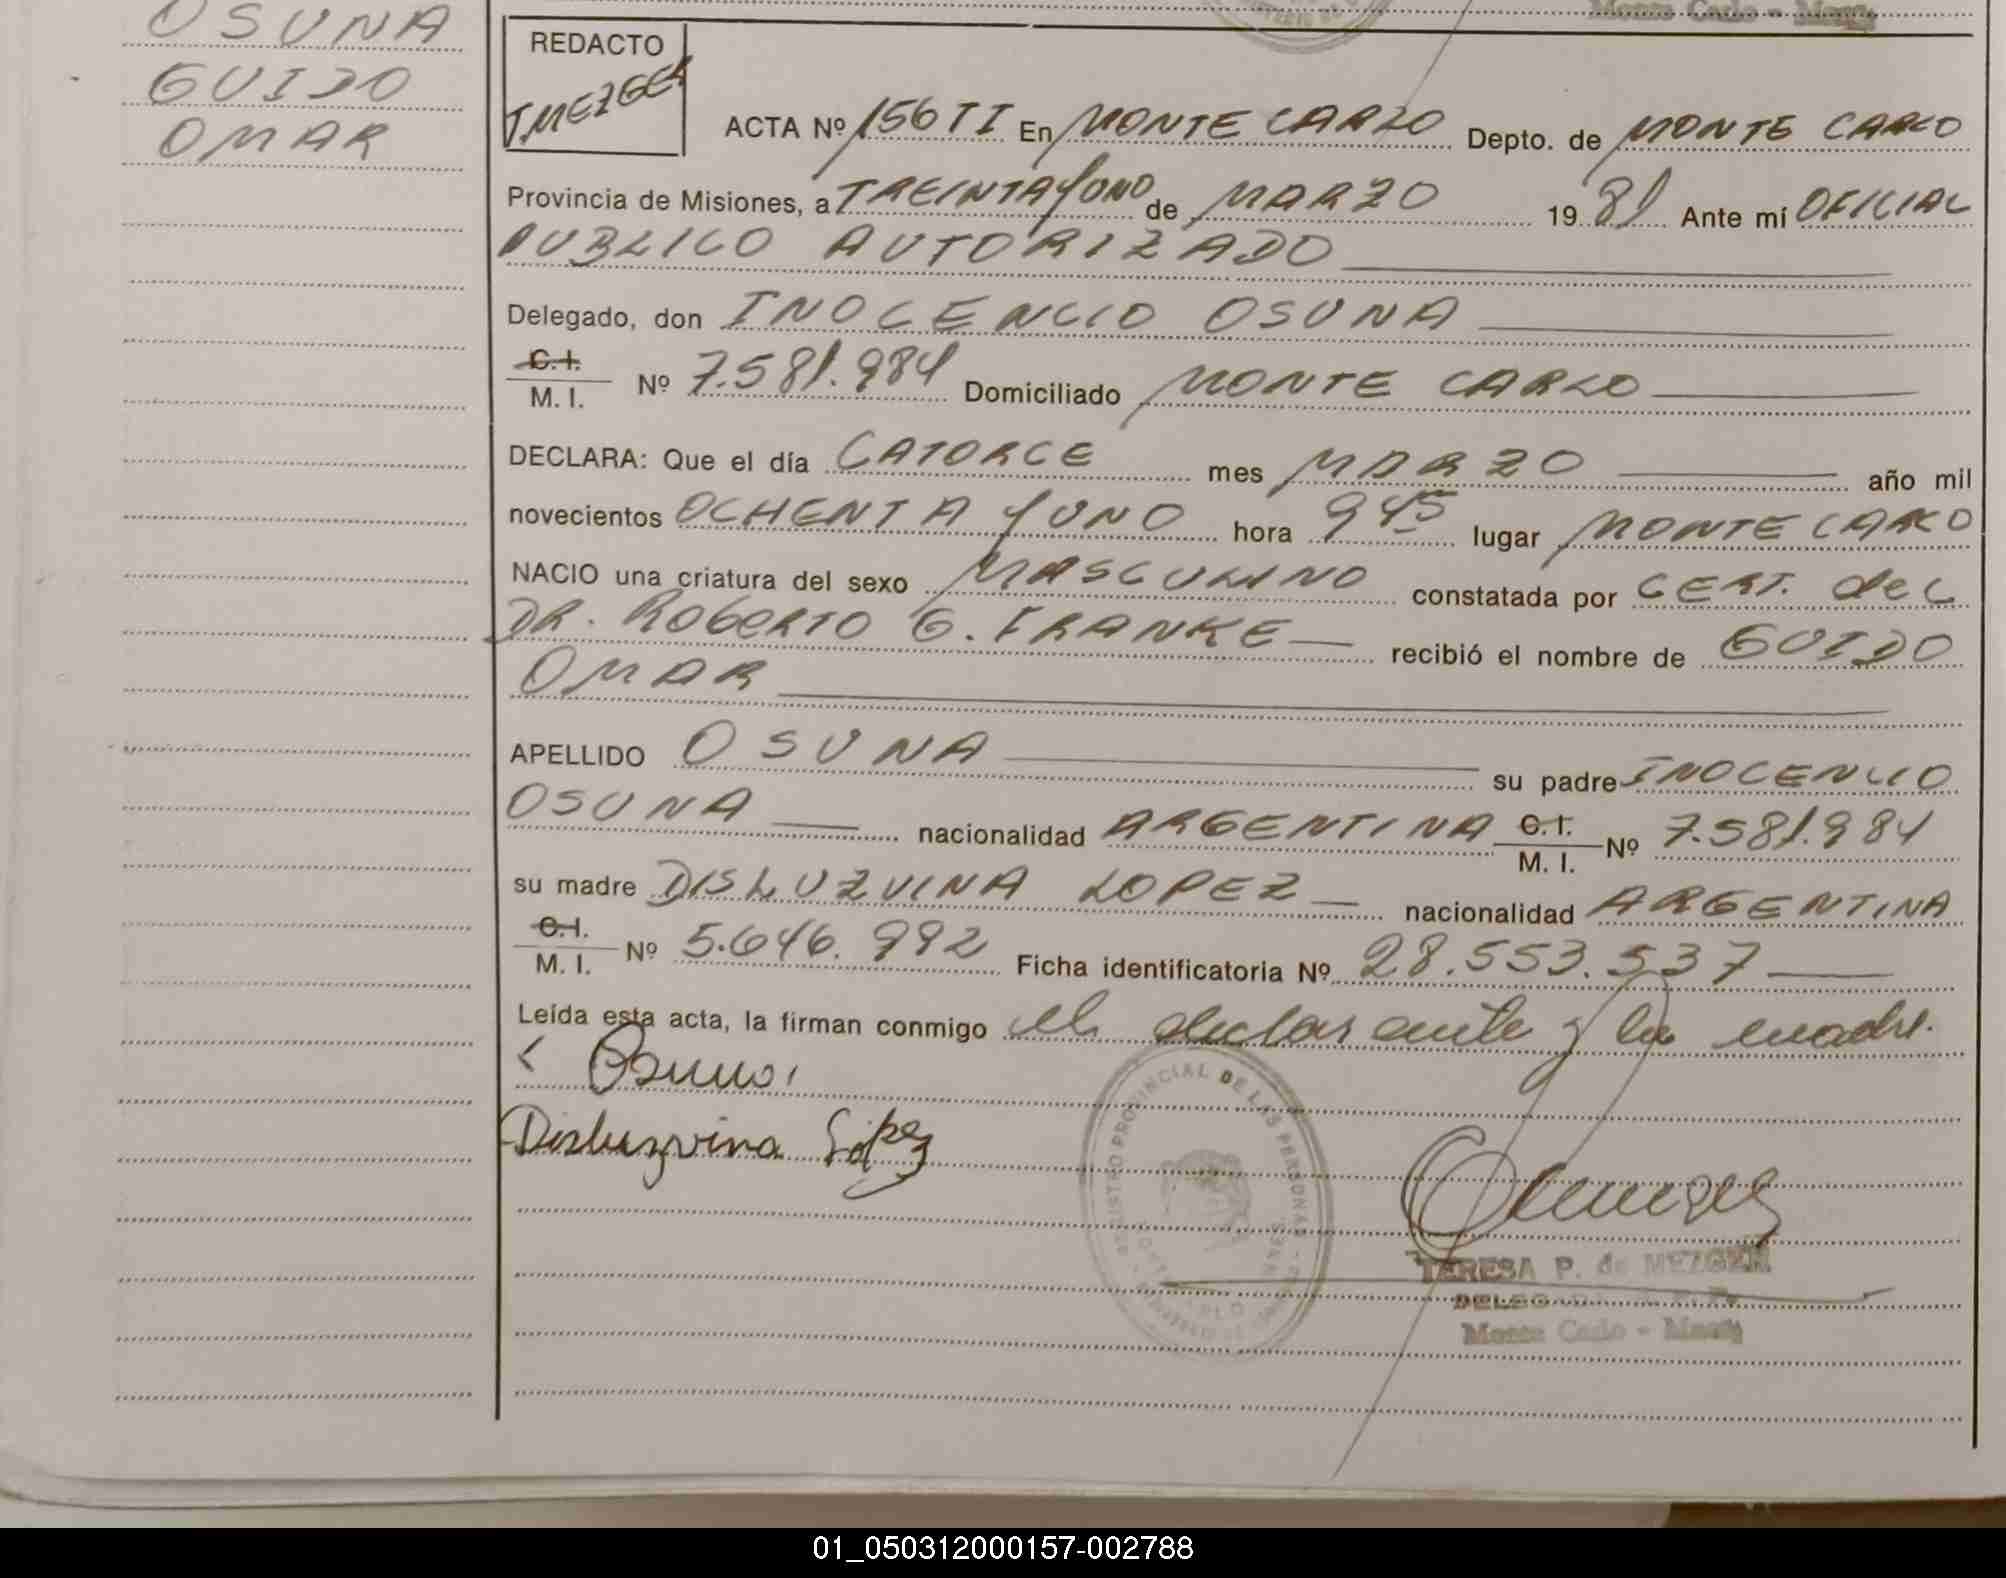 OSUNA
GUIDO
OMAR
Monte Carlo - Mnes
REDACTO
T.MEZGER
ACTA Nº 156 TI En MONTE CARLO Depto. de MONTE CARLO
Provincia de Misiones, a TREINTA Y UNO de MARZO 1981 Ante mí OFICIAL
PUBLICO AUTORIZADO
Delegado, don INOCENCIO OSUNA
C.I.
M. I. Nº 7.581.984 Domiciliado MONTE CARLO
DECLARA: Que el día CATORCE mes MARZO año mil
novecientos OCHENTA Y UNO hora 9 45 lugar MONTE CARLO
NACIO una criatura del sexo MASCULINO constatada por CERT. del
DR. ROBERTO G. FRANKE recibió el nombre de GUIDO
OMAR
APELLIDO OSUNA su padre INOCENCIO
OSUNA nacionalidad ARGENTINA C.I. M. I. Nº 7.581.984
su madre DISLUZVINA LOPEZ nacionalidad ARGENTINA
C.I.
M. I. Nº 5.646.992 Ficha identificatoria Nº 28.553.537
Leída esta acta, la firman conmigo el declarante y la madre.
Osuna
Disluzvina López
REGISTRO PROVINCIAL DE LAS PERSONAS
TERESA P. de MEZGER
Monte Carlo - Mnes
01_050312000157-002788